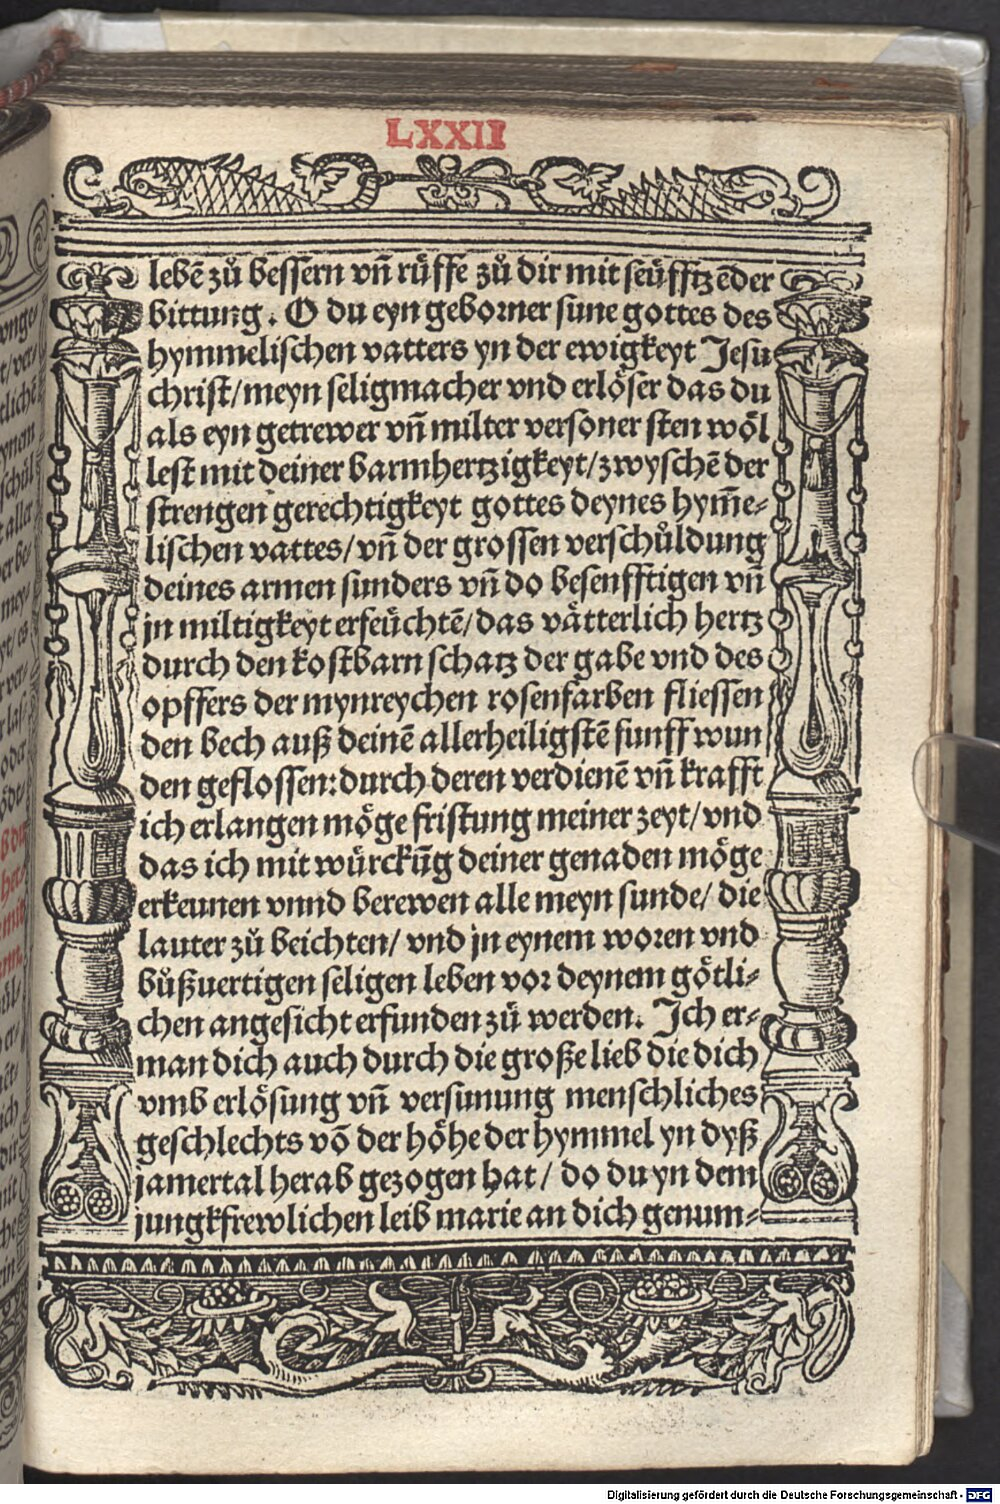 LXXII
lebē zů bessern vñ rüffe zů dir mit seüfftzēder
bittung. O du eyn geborner sune gottes des
hymmelischen vatters yn der ewigkeyt Jesu
christ/meyn seligmacher vnd erlöser das du
als eyn getrewer vñ milter versoner sten wöl
lest mit deiner barmhertzigkeyt/zwyschē der
strengen gerechtigkeyt gottes deynes hym̄e-
lischen vattes/vñ der grossen verschůldung
deines armen sunders vñ do besenfftigen vñ
jn miltigkeyt erfeüchtē/das vätterlich hertz
durch den kostbarn schatz der gabe vnd des
opffers der mynreychen rosenfarben fliessen
den bech auß deinē allerheiligstē funff wun
den geflossen:durch deren verdienē vñ krafft
ich erlangen möge fristung meiner zeyt/vnd
das ich mit würckūg deiner genaden möge
erkeunen vnnd berewen alle meyn sunde/die
lauter zů beichten/vnd jn eynem woren vnd
bůßuertigen seligen leben vor deynem götli-
chen angesicht erfunden zů werden. Ich er-
man dich auch durch die große lieb die dich
vmb erlösung vñ versunung menschliches
geschlechts vō der höhe der hymmel yn dyß
jamertal herab gezogen hat/do du yn dem
jungkfrewlichen leib marie an dich genum-
Digitalisierung gefördert durch die Deutsche Forschungsgemeinschaft - DFG